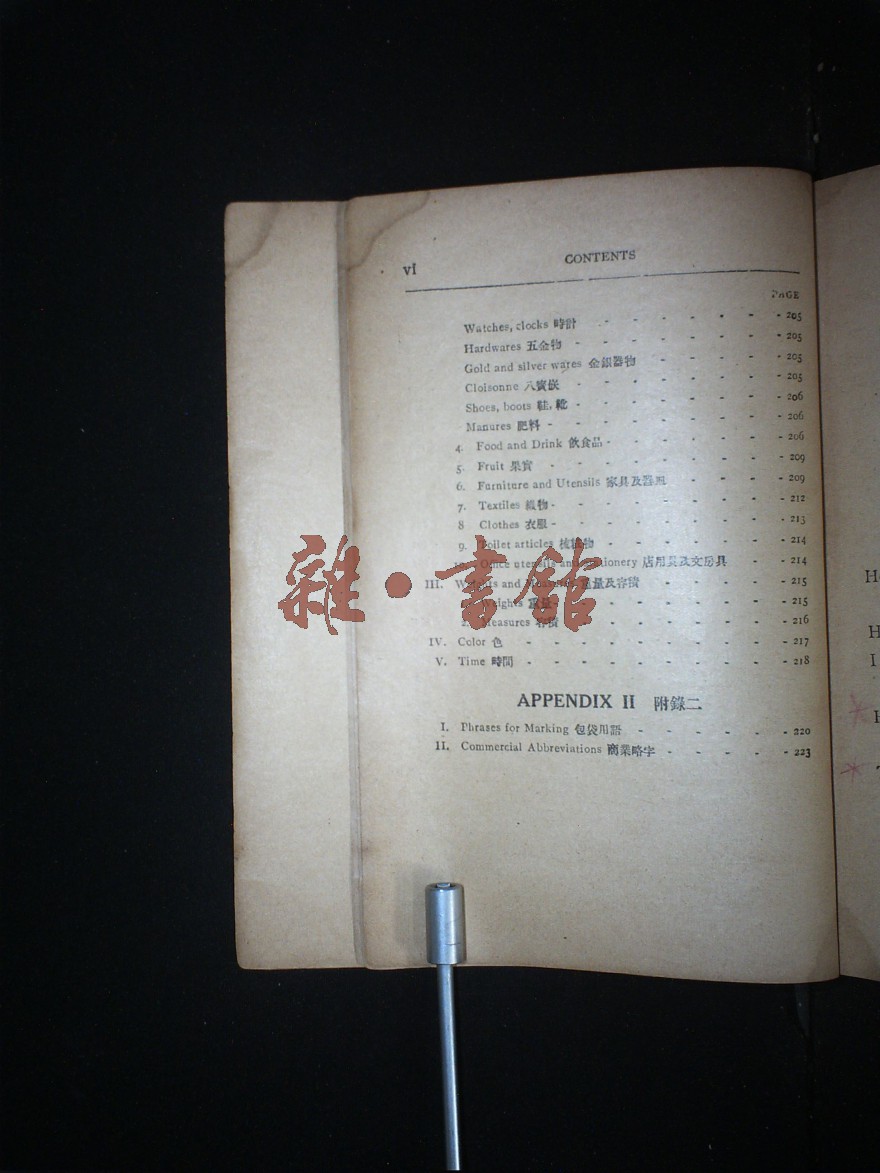 vi
CONTENTS
PAGE
Watches, clocks 時計 - - - - - - - 205
Hardwares 五金物 - - - - - - - - 205
Gold and silver wares 金銀器物 - - - - - - 205
Cloisonne 八寶嵌 - - - - - - - - 205
Shoes, boots 鞋, 靴 - - - - - - - - 206
Manures 肥料 - - - - - - - - - 206
4. Food and Drink 飲食品 - - - - - - - 206
5. Fruit 果實 - - - - - - - - - 209
6. Furniture and Utensils 家具及器皿 - - - - - 209
7. Textiles 織物 - - - - - - - - - 212
8 Clothes 衣服 - - - - - - - - - 213
9. Toilet articles 梳 物 - - - - - - - 214
Office utensils and stationery 店用具及文房具 - - - 214
III. Weights and Measures 重量及容積 - - - - - 215
Weights 重量 - - - - - - - - - 215
2. Measures 容積 - - - - - - - - 216
IV. Color 色 - - - - - - - - - - 217
V. Time 時間 - - - - - - - - - - 218
APPENDIX II 附錄二
I. Phrases for Marking 包袋用語 - - - - - - 220
II. Commercial Abbreviations 商業略字 - - - - - 223
雜·書館
H
I